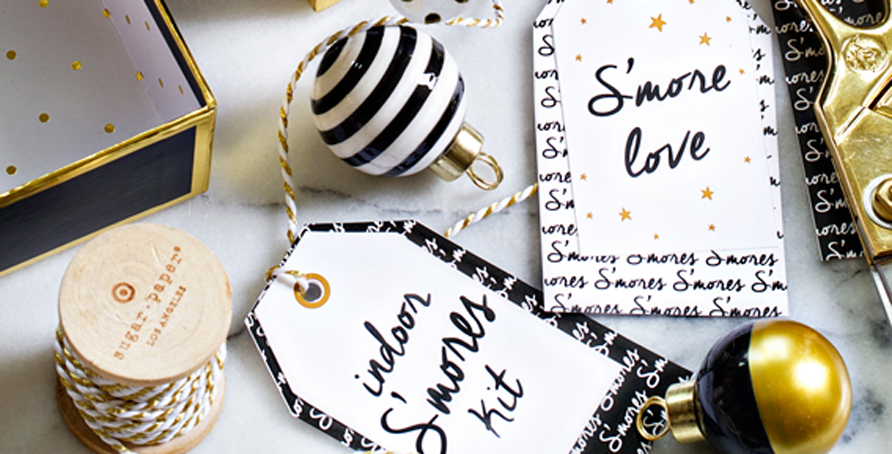 S'more
love
indoor
S'mores
Kit
sugar paper®
LOS ANGELES
S'mores S'mores S'm
mores S'mores S'mores
S'mores S'mores S'm